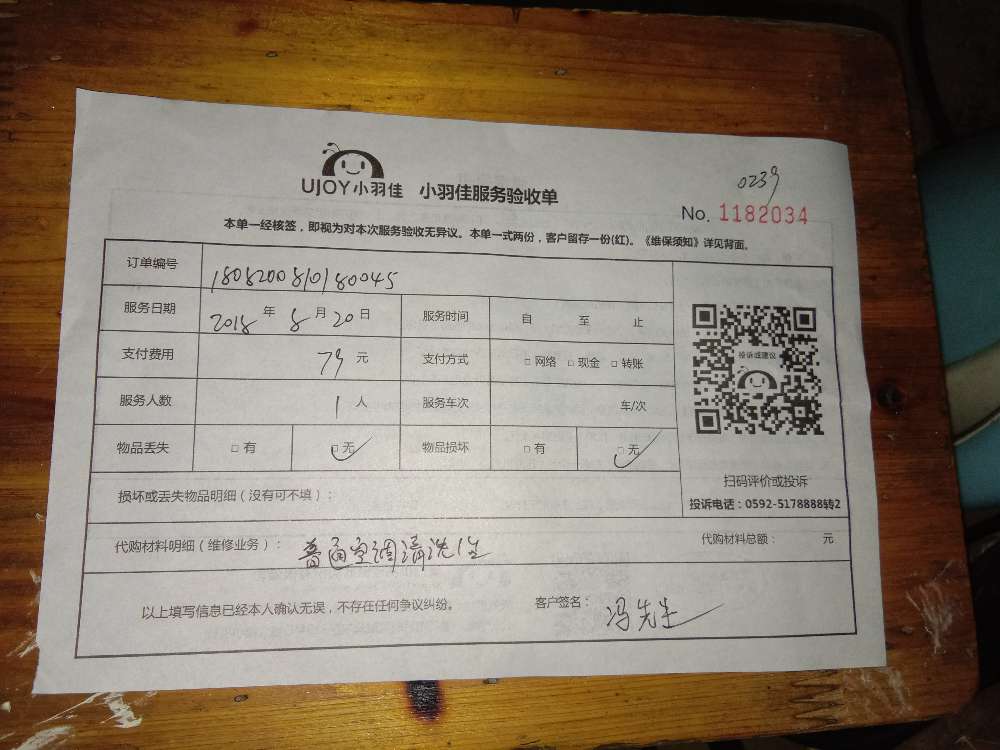 0239
UJOY小羽佳 小羽佳服务验收单
No. 1182034
本单一经核签，即视为对本次服务验收无异议。本单一式两份，客户留存一份(红)。《维保须知》详见背面。
订单编号 1808200810180045
服务日期 2018年 8月20日 服务时间 自 至 止
支付费用 79元 支付方式 □ 网络 □ 现金 □ 转账
服务人数 1人 服务车次 车/次
物品丢失 □ 有 □ 无 ✓ 物品损坏 □ 有 □ 无 ✓
投诉或建议
扫码评价或投诉
投诉电话：0592-5178888转2
损坏或丢失物品明细（没有可不填）：
代购材料明细（维修业务）： 普通空调清洗1 代购材料总额： 元
以上填写信息已经本人确认无误，不存在任何争议纠纷。 客户签名： 冯先生